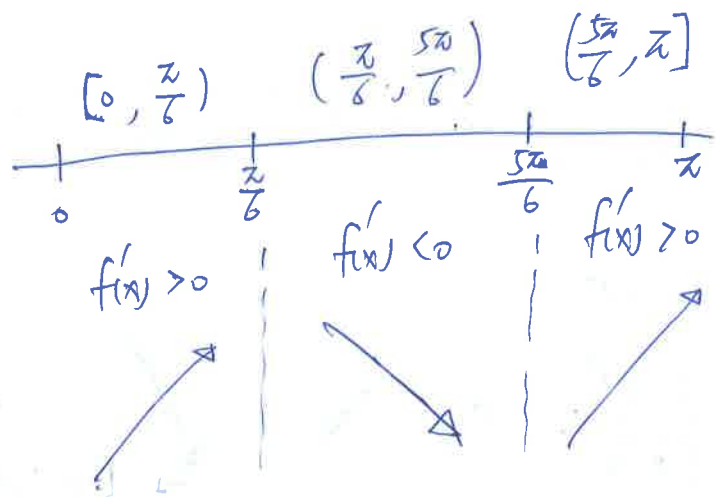 [0, π/6) (π/6, 5π/6) (5π/6, π]
0 π/6 5π/6 π
f'(x) >0 f'(x) <0 f'(x) >0